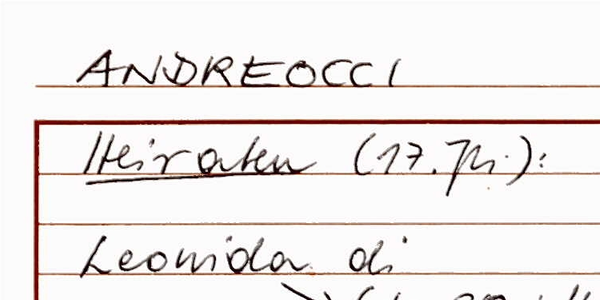 ANDREOCCI
Heiraten (17. Jh.):
Leonida di